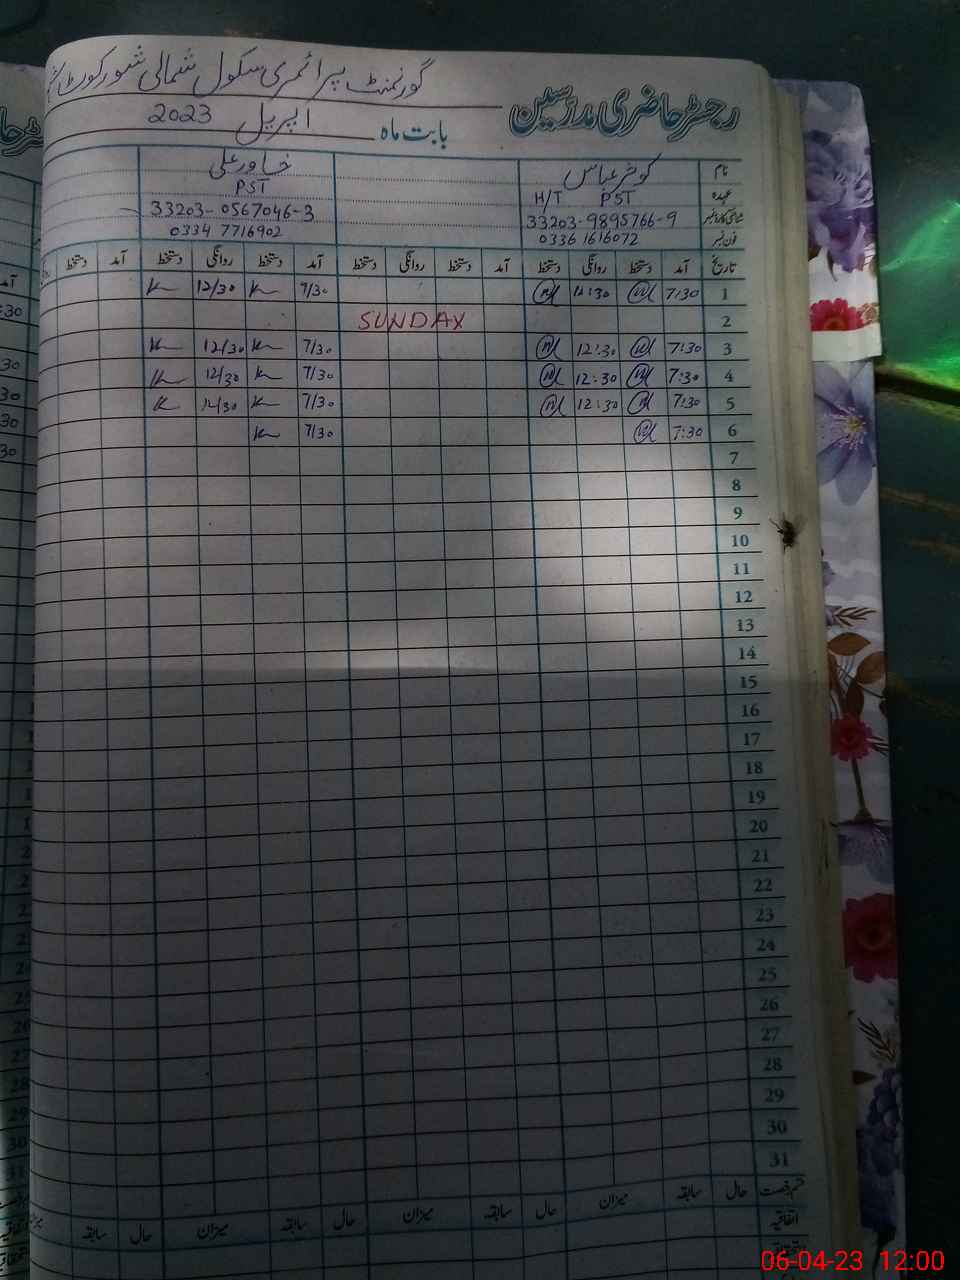 گورنمنٹ پرائمری سکول شمالی شورکوٹ
رجسٹر حاضری مدرسین
بابت ماہ اپریل 2023
نام کوثر عباس خاور علی
عہدہ H/T PST PST
شناختی کارڈ نمبر 33203-9895766-9 33203-0567046-3
فون نمبر 0336 1616072 0334 7716902
تاریخ آمد دستخط روانگی دستخط آمد دستخط روانگی دستخط آمد دستخط روانگی دستخط آمد دستخط
1 7:30 12:30 7/30 12/30
2 SUNDAY
3 7:30 12:30 7/30 12/30
4 7:30 12:30 7/30 12/30
5 7:30 12:30 7/30 12/30
6 7:30 7/30
7
8
9
10
11
12
13
14
15
16
17
18
19
20
21
22
23
24
25
26
27
28
29
30
31
قسم رخصت حال سابقہ میزان حال سابقہ میزان حال سابقہ میزان حال سابقہ
اتفاقیہ
06-04-23 12:00